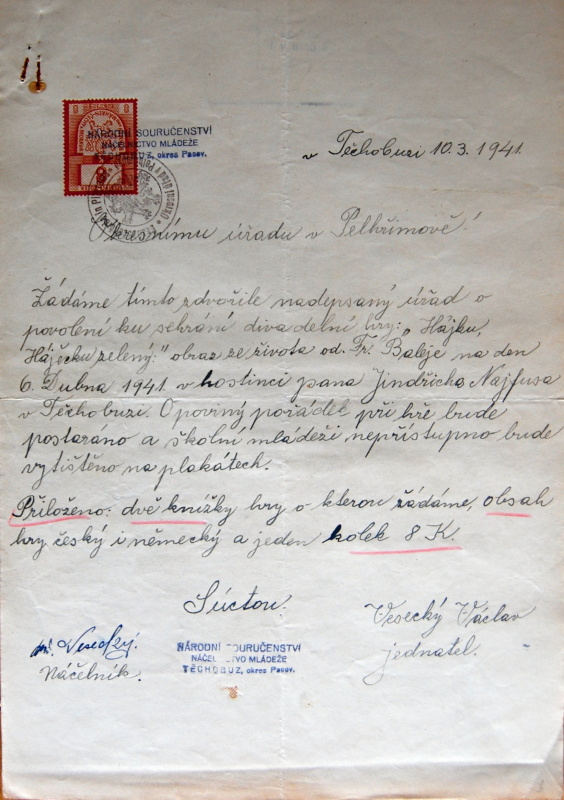 NÁRODNÍ SOURUČENSTVÍ
NÁČELNICTVO MLÁDEŽE
TĚCHOBUZ, okres Pacov.
v Těchobuzi 10.3. 1941.
Okresnímu úřadu v Pelhřimově!
Žádáme tímto zdvořile nadepsaný úřad o
povolení ku sehrání divadelní hry: „Hájku,
Háječku zelený:" obraz ze života od. Fr. Baleje na den
6. Dubna 1941. v hostinci pana Jindřicha Najfusa
v Těchobuzi. O poviný pořádek při hře bude
postaráno a školní mládeži nepřístupno bude
vytištěno na plakátech.
Přiloženo: dvě knížky hry o kterou žádáme, obsah
hry český i německý a jeden kolek 8 K.
Súctou.
Vesecký Václav
jednatel.
Vesecký.
Náčelník.
NÁRODNÍ SOURUČENSTVÍ
NÁČELNICTVO MLÁDEŽE
TĚCHOBUZ, okres Pacov.